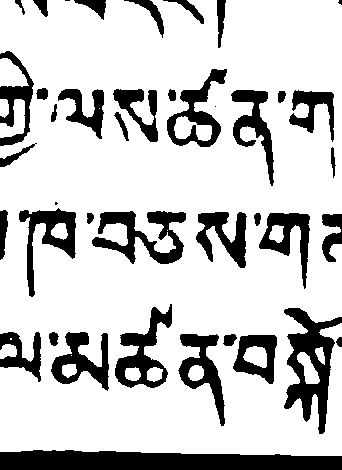 གྱི་ལས་ཚན་ག
ཁ་བཅས་ག
ལ་མཚན་བསྐོ